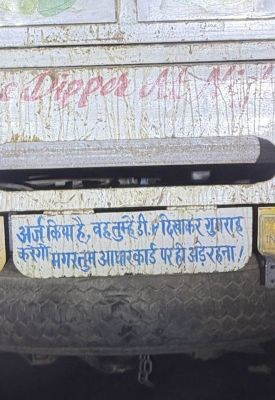 Use Dipper At Night
अर्ज किया है, वह तुम्हें डी.P दिखाकर गुमराह
करेंगी मगर तुम आधार कार्ड पर ही अड़े रहना!